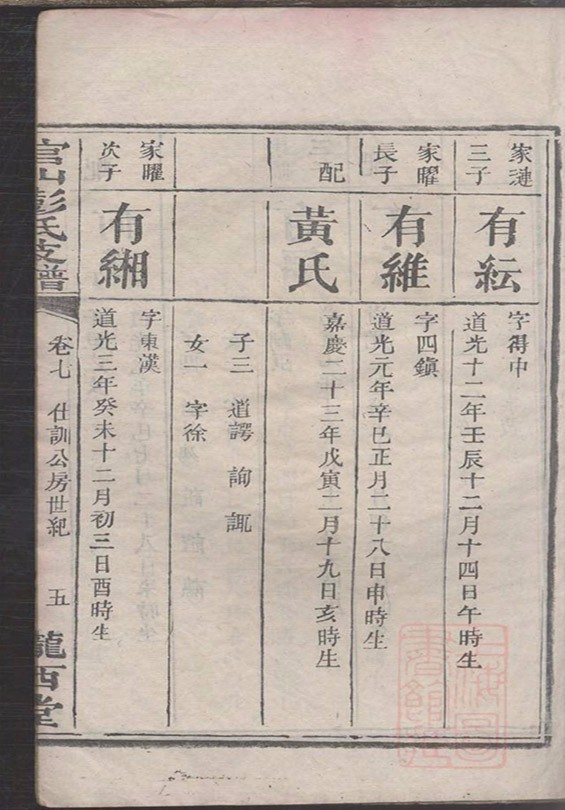 家漣
三子
有紜
字得中
道光十二年壬辰十二月十四日午時生
家曜
長子
有維
字四鎮
道光元年辛巳正月二十八日申時生
配
黃氏
嘉慶二十三年戊寅二月十九日亥時生
子三 道諤 詢 諏
女一 字徐
家曜
次子
有緗
字東漢
道光三年癸未十二月初三日酉時生
官山彭氏支譜
卷七 仕訓公房世紀 五
隴西堂